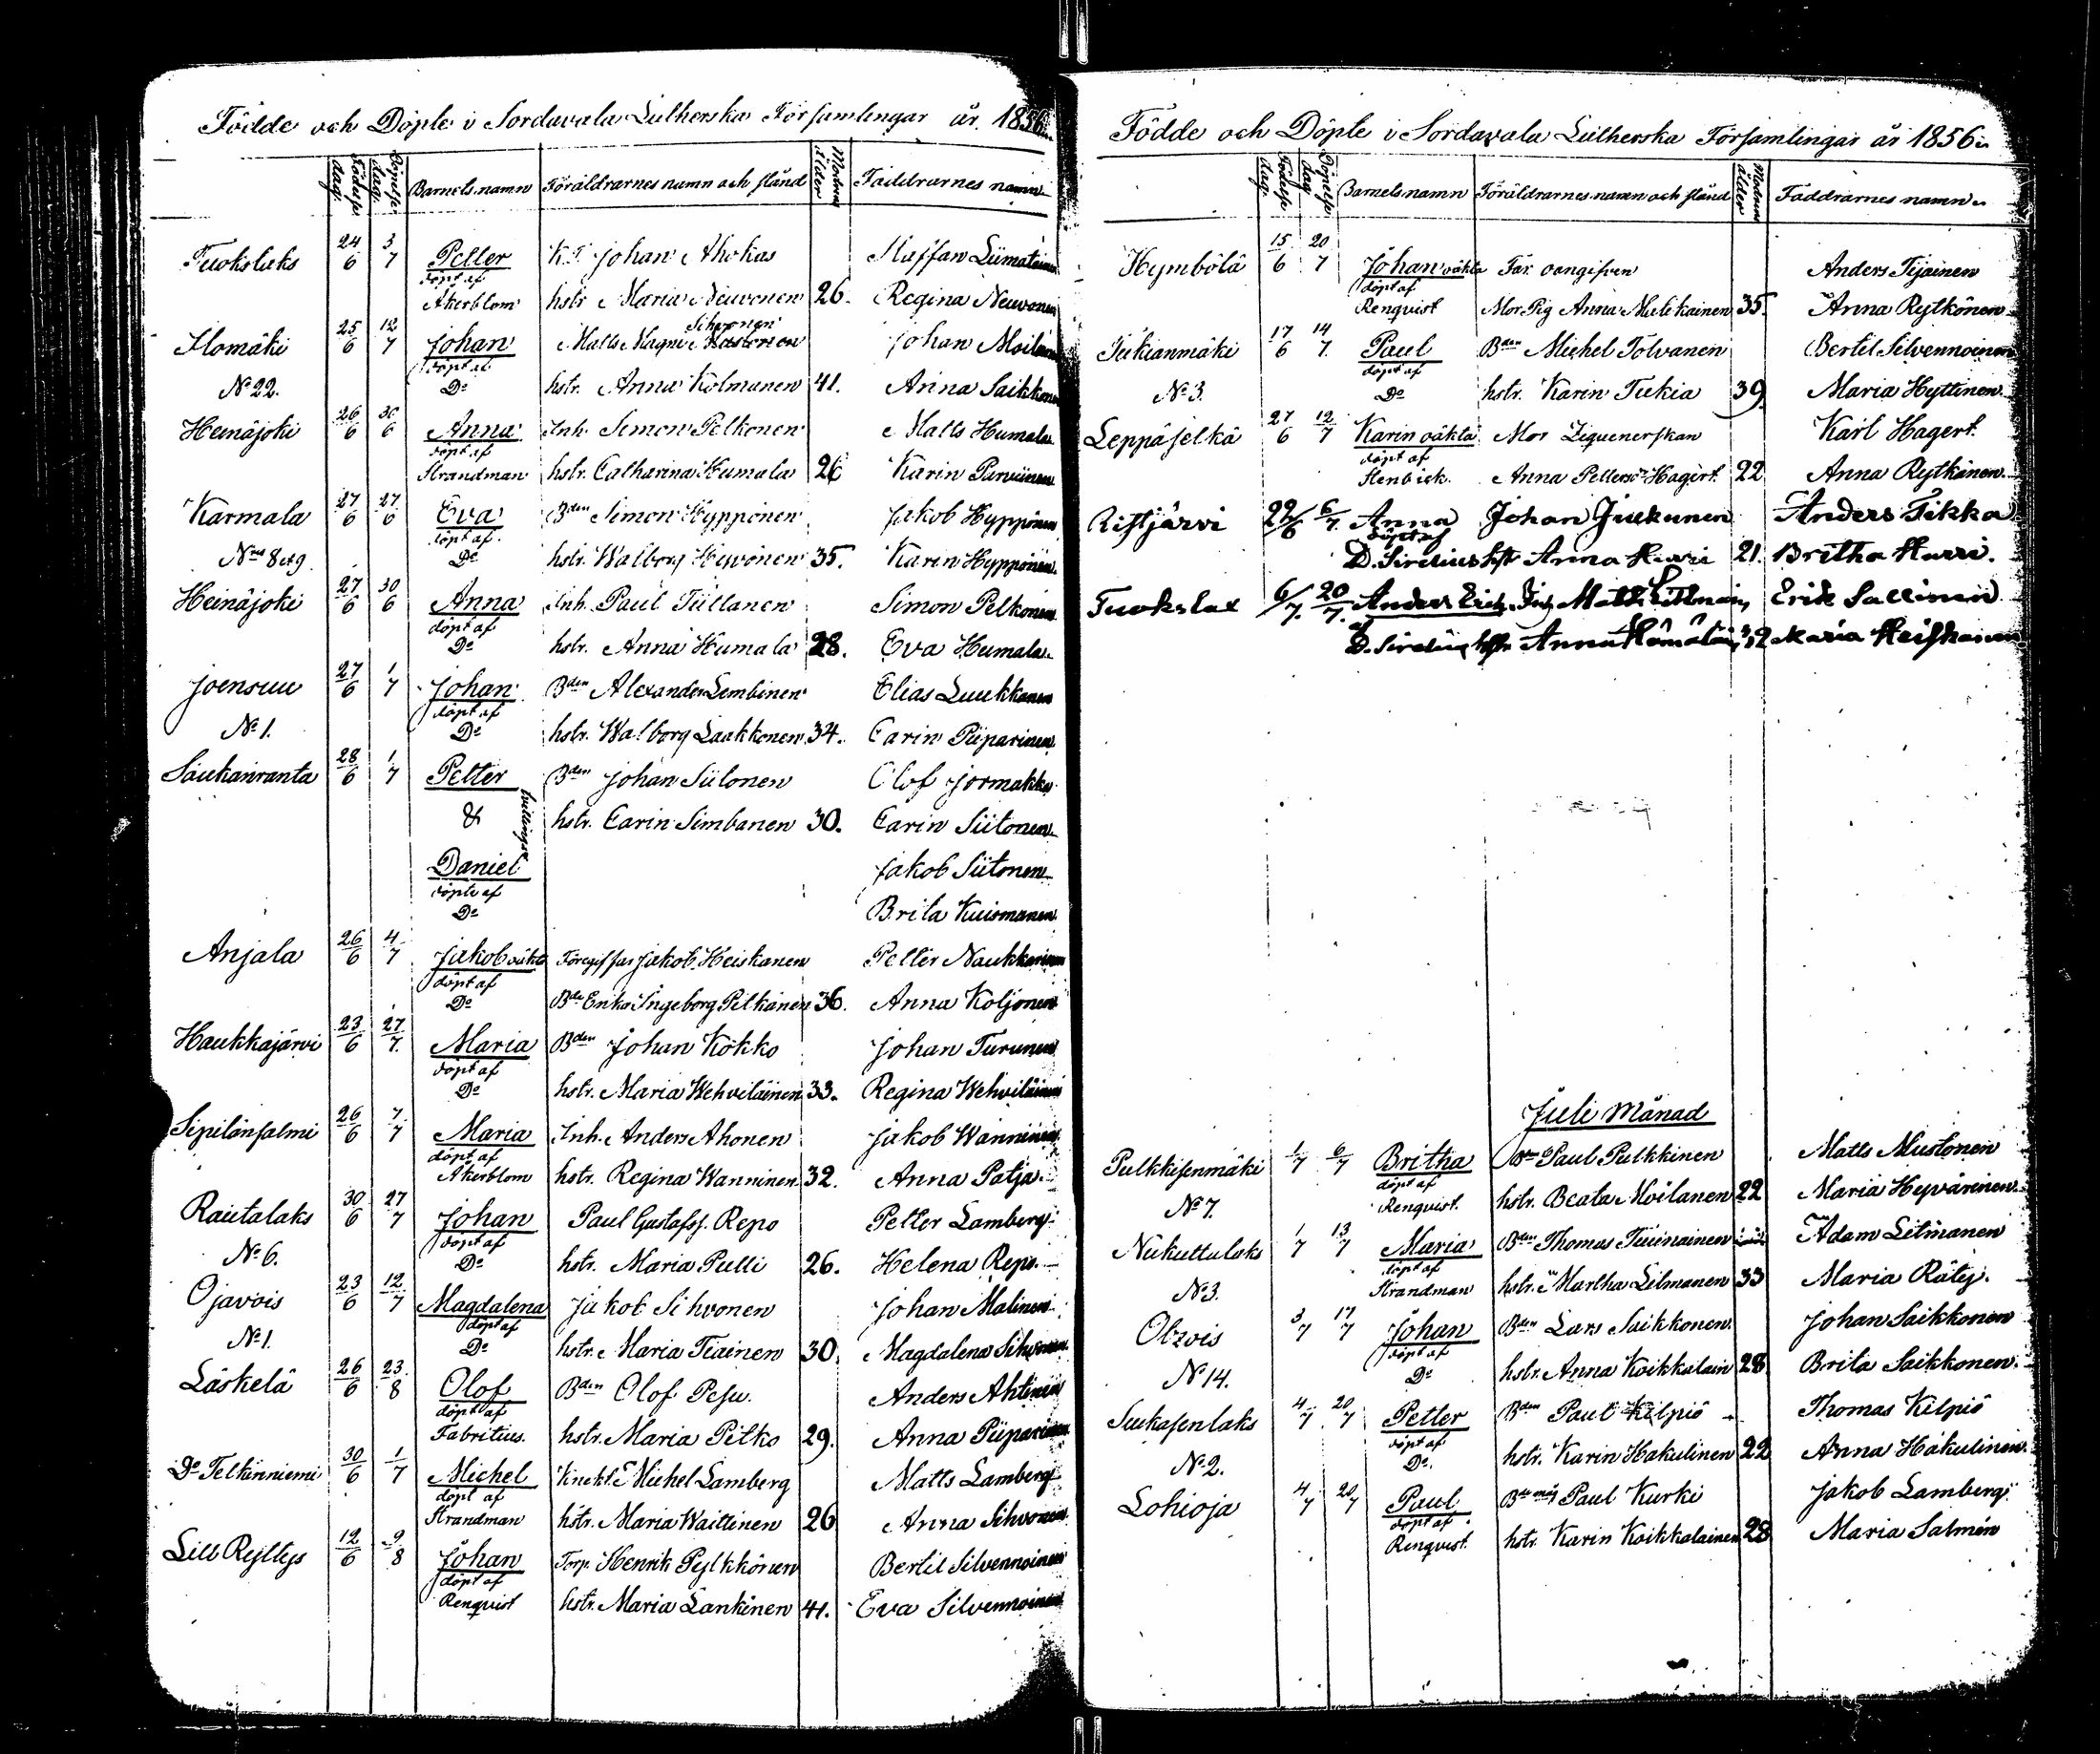 Födde och Döpte i Sordavala Lutherska Församlingar år 1856
Födelse dag. Döpelse dag. Barnets namn Föräldrarnes namn och stånd Modrens ålder Faddrarnes namn
Tuokslaks 24/6 3/7 Petter Johan Ahokas Staffan Liimatainen
döpt af
Åkerblom hstr Maria Neuvonen 26. Regina Neuvonen
Ilomäki 25/6 12/7 Johan Matts Magni Sihvonen Johan Moilanen
döpt af
No 22. Do hstr. Anna Kolmanen 41. Anna Saikkonen
Heinäjoki 26/6 30/6 Anna Inh. Simon Pelkonen Matts Humala
döpt af
Strandman hstr. Catharina Humala 26 Karin Parviainen
Karmala 27/6 27/6 Eva Bden Simon Hyppönen Jakob Hyppönen
döpt af
Nris 8 et 9 Do hstr. Walborg Hirvonen 35. Karin Hyppönen
Heinäjoki 27/6 30/6 Anna Inh. Paul Tiillanen Simon Pelkonen
döpt af
Do hstr. Anna Humala 28. Eva Humala
Joensuu 27/6 1/7 Johan Bden Alexander Lembinen Elias Luukkanen
döpt af
No 1. Do hstr. Walborg Laakkonen 34. Carin Piiparinen
Saukanranta 28/6 1/7 Petter Bden Johan Siitonen Olof Jormakka
& tvillingar hstr. Carin Simbanen 30. Carin Siitonen
Daniel Jakob Siitonen
döpte af
Do Brita Kuismanen
Anjala 26/6 4/7 Jakob oäkta Jakob Heiskanen Petter Naukkarinen
döpt af
Do Bde Enka Ingeborg Pitkänen 36. Anna Koljonen
Haukkajärvi 23/6 27/7 Maria Bden Johan Kokko Johan Turunen
döpt af
Do hstr. Maria Wehviläinen 33. Regina Wehviläinen
Sipilänsalmi 26/6 7/7 Maria Inh. Anders Ahonen Jakob Wanninen
döpt af
Åkerblom hstr. Regina Wanninen 32. Anna Patja
Rautalaks 30/6 27/7 Johan Paul Gustafss. Repo Petter Lamberg
döpt af
No 6. Do hstr. Maria Pulli 26. Helena Repo
Ojavois 23/6 12/7 Magdalena Jakob Sihvonen Johan Malinen
döpt af
No 1. Do hstr. Maria Tiainen 30 Magdalena Sihvonen
Läskelä 26/6 23/8 Olof Bden Olof Pesu. Anders Ahtinen
döpt af
Fabritius. hstr. Maria Pitko 29. Anna Piiparinen
Do Telkinniemi 30/6 1/7 Michel Knekt. Michel Lamberg Matts Lamberg
döpt af
Strandman hstr. Maria Waittinen 26 Anna Sihvonen
Lill Ryttys 12/6 9/8 Johan Torp. Henrik Pylkkönen Bertil Silvennoinen
döpt af
Renqvist hstr. Maria Lankinen 41. Eva Silvennoinen
Födde och Döpte i Sordavala Lutherska Församlingar år 1856
Födelse dag. Döpelse dag. Barnets namn Föräldrarnes namn och stånd Modrens ålder Faddrarnes namn
Hymbölä 15/6 20/7 Johan oäkta Far oangifven Anders Tijainen
döpt af
Renqvist Mor Pig Anna Mulikainen 35. Anna Rytkönen
Tukianmäki 17/6 14/7 Paul Bden Michel Tolvanen Bertil Silvennoinen
döpt af
No 3. Do hstr. Karin Tukia 39 Maria Hyttinen
Leppäselkä 27/6 12/7 Karin oäkta Mor Ziguenerskan Karl Hagert
döpt af
Stenbäck. Anna Pettersdr Hagert 22 Anna Rytkönen
Ristjärvi 22/6 6/7 Anna Johan Juukunen Anders Tikka
döpt af
D. Sirelius hstr Anna Hurri 21. Britha Hurri.
Tuokslax 6/7. 20/7. Anders Erik Erik Sallinen
D. Sirelius hstr Anna Hämäläin 32 Maria Heiskanen
Juli Månad
Pulkkisenmäki 1/7 6/7 Britha Bden Paul Pulkkinen Matts Mustonen
döpt af
No 7. Renqvist. hstr. Beata Moilanen 22 Maria Hyvärinen
Nukuttalaks 1/7 13/7 Maria Bden Thomas Tuunainen Adam Litmanen
döpt af
No 3. Strandman hstr. Martha Litmanen 33 Maria Räty.
Otsois 3/7 17/7 Johan Bden Lars Saikkonen Johan Saikkonen
döpt af
No 14. Do hstr. Anna Koikkalain 28 Brita Saikkonen
Suukasenlaks 4/7 20/7 Petter Bden Paul Kilpiö Thomas Kilpiö
döpt af
No 2. Do. hstr. Karin Hakulinen 22 Anna Hakulinen
Lohioja 4/7 20/7 Paul Paul Kurki Jakob Lamberg
döpt af
Renqvist. hstr. Karin Koikkalainen 28 Maria Salmén